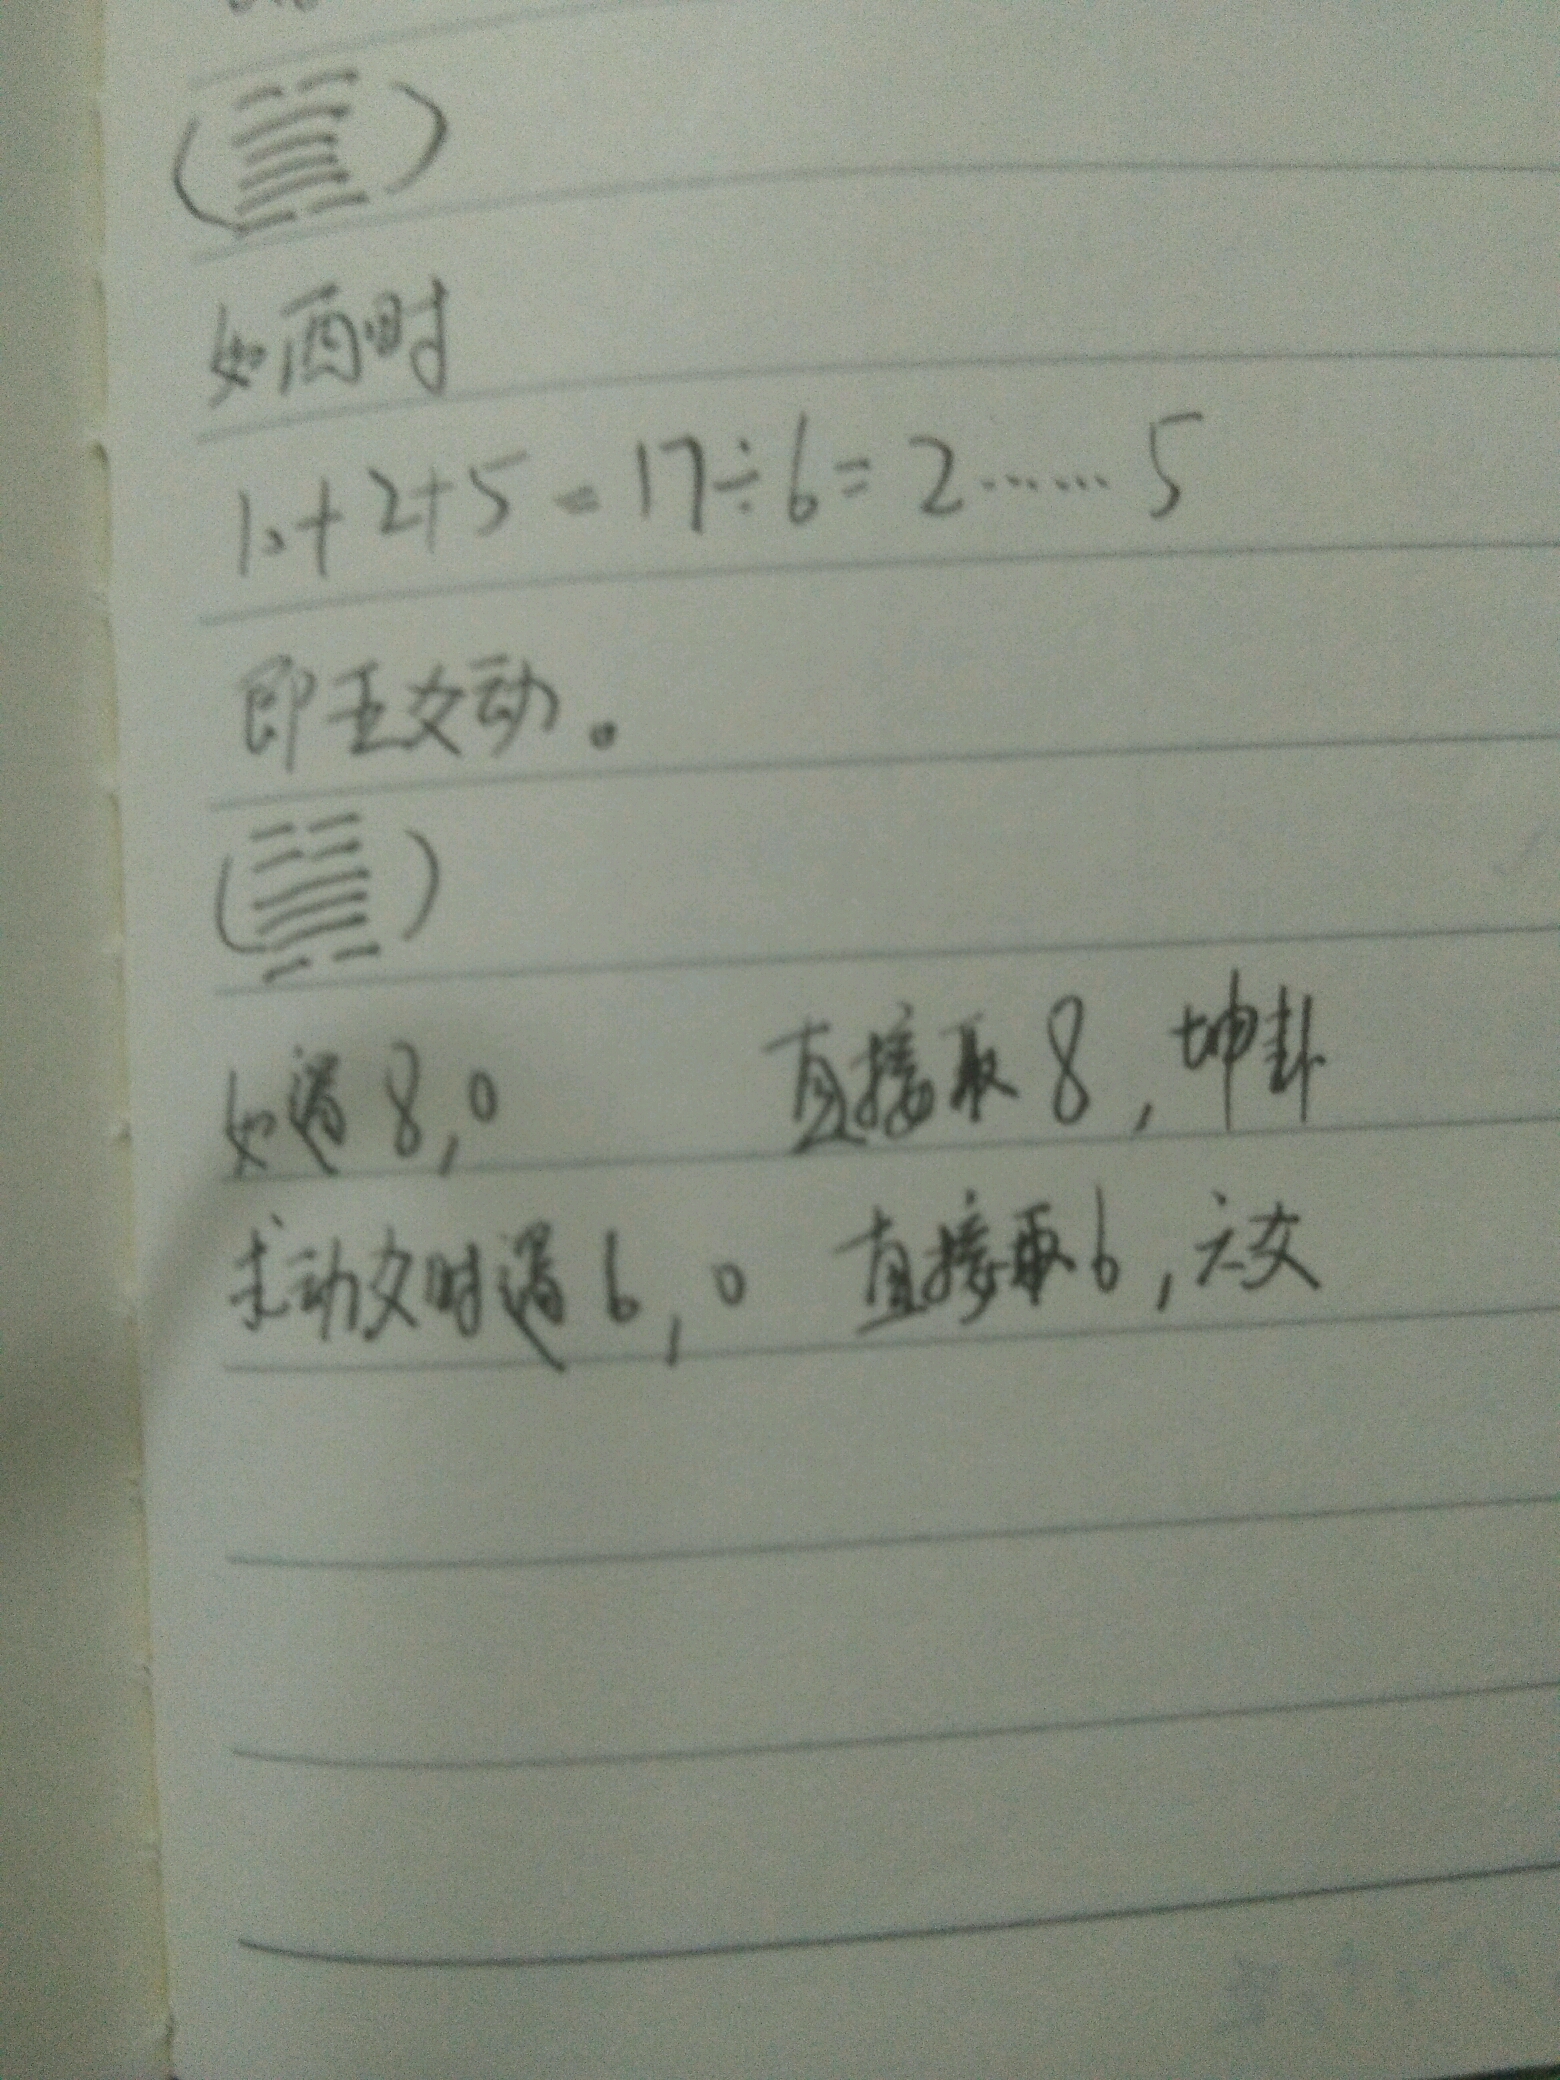 ( )
如酉时
10+2+5=17÷6=2……5
即五爻动。
( )
如遇8,0 直接取8,坤卦
求动爻时遇6,0 直接取6,六爻